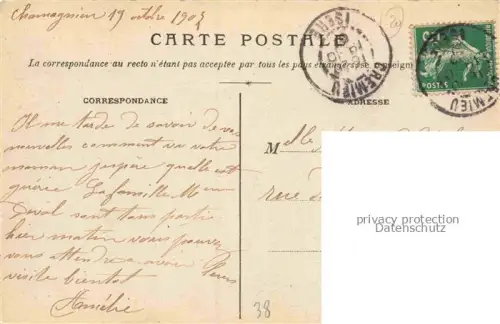 Chamagnieu 19 octobre 1907
CARTE POSTALE
La correspondance au recto n'étant pas acceptée par tous les pays étrangers se renseigner
CORRESPONDANCE
ADRESSE
CREMIEU
ISERE
POSTES
Il me tarde de savoir de vos
nouvelles comment va votre
maman j'espère quelle est
guérie La famille Mme
Doval sont tans partis
hier matin vous pouvez
vous attendre a avoir leurs
visite bientot
Amélie
Melle
rue
38
privacy protection
Datenschutz